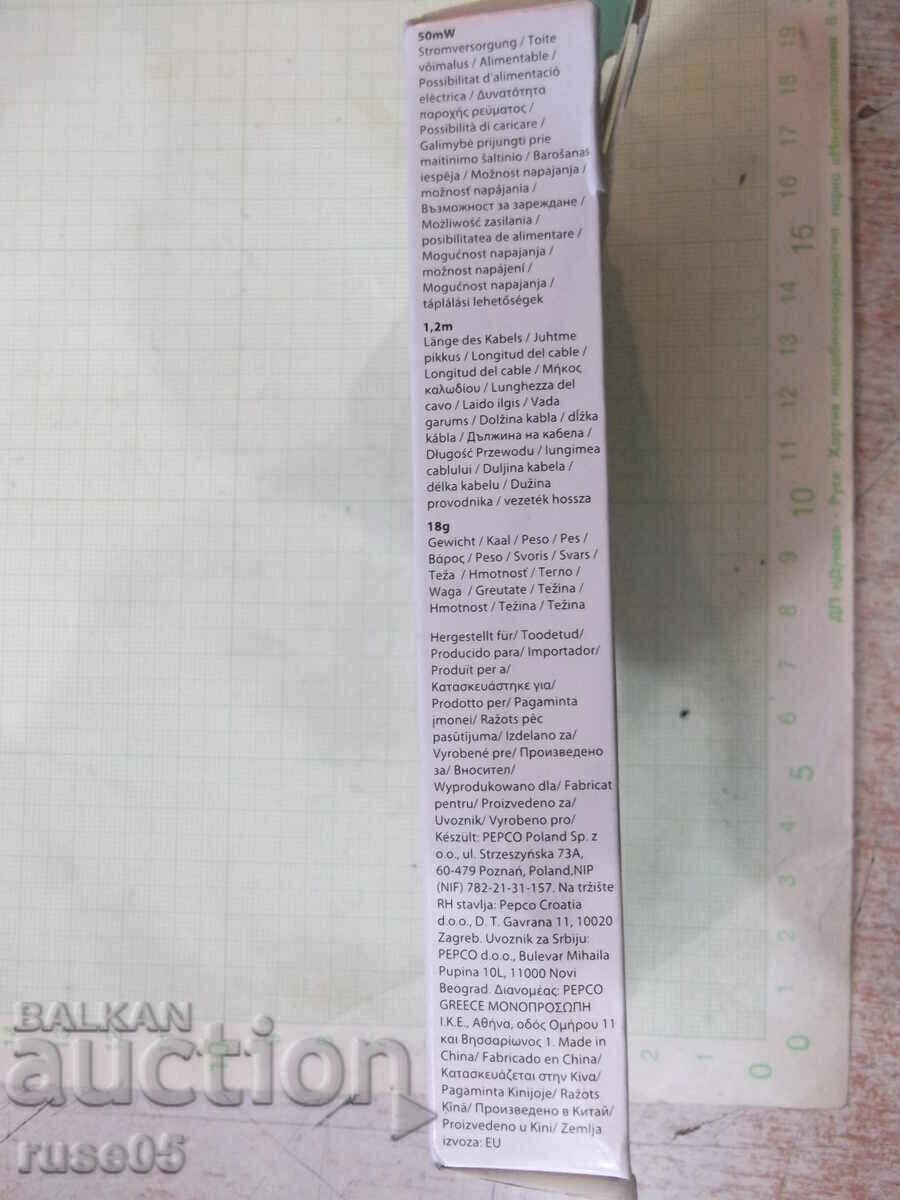 50mW
Stromversorgung / Toite
võimalus / Alimentable /
Possibilitat d'alimentació
elèctrica / Δυνατότητα
παροχής ρεύματος /
Possibilità di caricare /
Galimybė prijungti prie
maitinimo šaltinio / Barošanas
iespēja / Možnost napajanja /
možnosť napájania /
Възможност за зареждане /
Możliwość zasilania /
posibilitatea de alimentare /
Mogućnost napajanja /
možnost napájení /
Mogućnost napajanja /
táplálási lehetőségek
1,2m
Länge des Kabels / Juhtme
pikkus / Longitud del cable /
Longitud del cable / Μήκος
καλωδίου / Lunghezza del
cavo / Laido ilgis / Vada
garums / Dolžina kabla / dĺžka
kábla / Дължина на кабела /
Długość Przewodu / lungimea
cablului / Duljina kabela /
délka kabelu / Dužina
provodnika / vezeték hossza
18g
Gewicht / Kaal / Peso / Pes /
Βάρος / Peso / Svoris / Svars /
Teža / Hmotnosť / Тегло /
Waga / Greutate / Težina /
Hmotnost / Težina / Težina
Hergestellt für/ Toodetud/
Producido para/ Importador/
Produït per a/
Κατασκευάστηκε για/
Prodotto per/ Pagaminta
įmonei/ Ražots pēc
pasūtījuma/ Izdelano za/
Vyrobené pre/ Произведено
за/ Вносител/
Wyprodukowano dla/ Fabricat
pentru/ Proizvedeno za/
Uvoznik/ Vyrobeno pro/
Készült: PEPCO Poland Sp. z
o.o., ul. Strzeszyńska 73A,
60-479 Poznań, Poland,NIP
(NIF) 782-21-31-157. Na tržište
RH stavlja: Pepco Croatia
d.o.o., D. T. Gavrana 11, 10020
Zagreb. Uvoznik za Srbiju:
PEPCO d.o.o., Bulevar Mihaila
Pupina 10L, 11000 Novi
Beograd. Διανομέας: PEPCO
GREECE ΜΟΝΟΠΡΟΣΩΠΗ
Ι.Κ.Ε., Αθήνα, οδός Ομήρου 11
και Βησσαρίωνος 1. Made in
China/ Fabricado en China/
Κατασκευάζεται στην Κίνα/
Pagaminta Kinijoje/ Ražots
Ķīnā/ Произведено в Китай/
Proizvedeno u Kini/ Zemlja
izvoza: EU
19
18
17
16
15
14
13
12
11
10
9
8
7
6
5
4
3
2
1
0
0
1
2
10
ДП «Дунав» · Русе Хартия
BALKAN
auction
ruse05